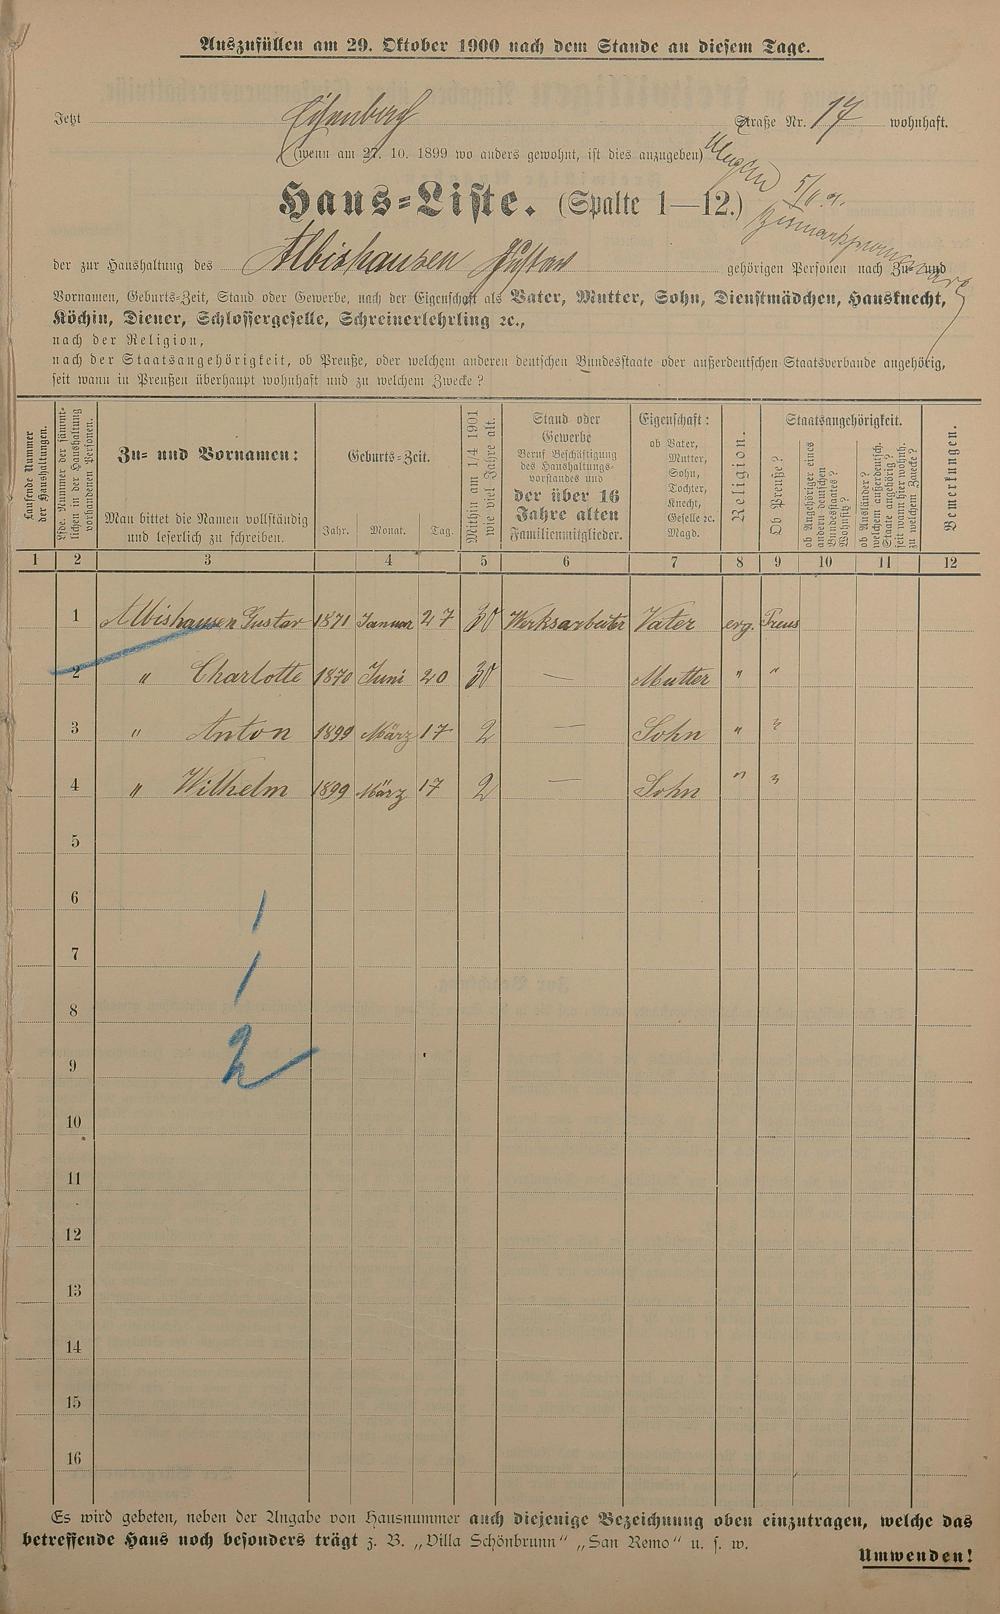 Auszufüllen am 29. Oktober 1900 nach dem Stande an diesem Tage.
Jetzt Straße Nr. 17 wohnhaft.
(wenn am 27. 10. 1899 wo anders gewohnt, ist dies anzugeben)
Haus=Liste. (Spalte 1—12.)
der zur Haushaltung des Albishausen Gustav gehörigen Personen nach Zu= und
Vornamen, Geburts=Zeit, Stand oder Gewerbe, nach der Eigenschaft als Vater, Mutter, Sohn, Dienstmädchen, Hausknecht,
Köchin, Diener, Schlossergeselle, Schreinerlehrling 2c.,
nach der Religion,
nach der Staatsangehörigkeit, ob Preuße, oder welchem anderen deutschen Bundesstaate oder außerdeutschen Staatsverbande angehörig,
seit wann in Preußen überhaupt wohnhaft und zu welchem Zwecke?
Laufende Nummer
der Haushaltungen.
Lfde. Nummer der sämmt-
lichen in der Haushaltung
vorhandenen Personen.
Zu= und Vornamen:
Man bittet die Namen vollständig
und leserlich zu schreiben.
Geburts=Zeit.
Jahr. Monat. Tag.
Mithin am 1/4 1901
wie viel Jahre alt.
Stand oder
Gewerbe
Beruf Beschäftigung
des Haushaltungs-
vorstandes und
der über 16
Jahre alten
Familienmitglieder.
Eigenschaft:
ob Vater,
Mutter,
Sohn,
Tochter,
Knecht,
Geselle 2c.
Magd.
Religion.
Staatsangehörigkeit.
Ob Preuße?
ob Angehöriger eines
andern deutschen
Bundesstaates?
Wohnsitz?
ob Ausländer?
welchem außerdeutsch.
Staate angehörig?
seit wann hier wohnh.
zu welchem Zwecke?
Bemerkungen.
1 2 3 4 5 6 7 8 9 10 11 12
1 Albishausen Gustav 1871 Januar 27 30 Werksarbeiter Vater evg. Preus
2 " Charlotte 1870 Juni 20 30 — Mutter " "
3 " Anton 1899 März 17 2 — Sohn " "
4 " Wilhelm 1899 März 17 2 — Sohn " "
5
6
7
8
9
10
11
12
13
14
15
16
1
1
2
Es wird gebeten, neben der Angabe von Hausnummer auch diejenige Bezeichnung oben einzutragen, welche das
betreffende Haus noch besonders trägt z. B. „Villa Schönbrunn" „San Remo" u. s. w.
Umwenden!